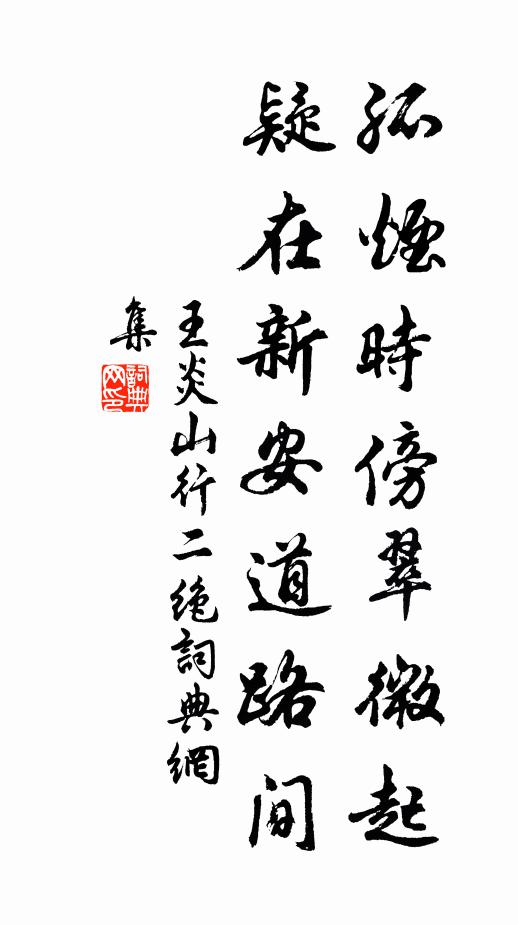 孤煙時傍翠微起
疑在新安道路間
王炎山行二絶詞典網
集
詞典
网印